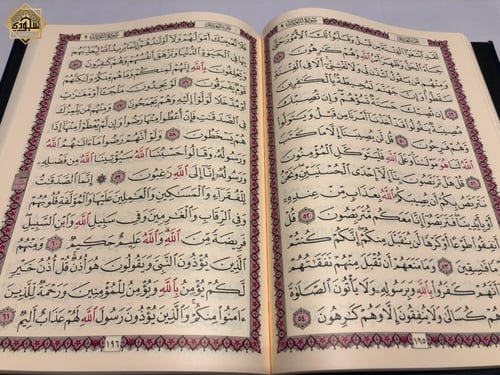 سُورَةُ التَّوْبَةِ ٩
لَقَدِ ٱبْتَغَوُا۟ ٱلْفِتْنَةَ مِن قَبْلُ وَقَلَّبُوا۟ لَكَ ٱلْأُمُورَ حَتَّىٰ
جَآءَ ٱلْحَقُّ وَظَهَرَ أَمْرُ ٱللَّهِ وَهُمْ كَٰرِهُونَ ٤٨
وَمِنْهُم مَّن يَقُولُ ٱئْذَن لِّى وَلَا تَفْتِنِّىٓ أَلَا فِى ٱلْفِتْنَةِ
سَقَطُوا۟ وَإِنَّ جَهَنَّمَ لَمُحِيطَةٌۢ بِٱلْكَٰفِرِينَ
٤٩ إِن تُصِبْكَ حَسَنَةٌ تَسُؤْهُمْ وَإِن تُصِبْكَ
مُصِيبَةٌ يَقُولُوا۟ قَدْ أَخَذْنَآ أَمْرَنَا مِن قَبْلُ وَيَتَوَلَّوا۟
وَّهُمْ فَرِحُونَ ٥٠ قُل لَّن يُصِيبَنَآ إِلَّا مَا كَتَبَ
ٱللَّهُ لَنَا هُوَ مَوْلَىٰنَا وَعَلَى ٱللَّهِ فَلْيَتَوَكَّلِ ٱلْمُؤْمِنُونَ
٥١ قُلْ هَلْ تَرَبَّصُونَ بِنَآ إِلَّآ إِحْدَى ٱلْحُسْنَيَيْنِ وَنَحْنُ
نَتَرَبَّصُ بِكُمْ أَن يُصِيبَكُمُ ٱللَّهُ بِعَذَابٍ مِّنْ عِندِهِۦٓ
أَوْ بِأَيْدِينَا فَتَرَبَّصُوٓا۟ إِنَّا مَعَكُم مُّتَرَبِّصُونَ ٥٢ قُلْ
أَنفِقُوا۟ طَوْعًا أَوْ كَرْهًا لَّن يُتَقَبَّلَ مِنكُمْ إِنَّكُمْ كُنتُمْ
قَوْمًا فَٰسِقِينَ ٥٣ وَمَا مَنَعَهُمْ أَن تُقْبَلَ مِنْهُمْ نَفَقَٰتُهُمْ
إِلَّآ أَنَّهُمْ كَفَرُوا۟ بِٱللَّهِ وَبِرَسُولِهِۦ وَلَا يَأْتُونَ ٱلصَّلَوٰةَ
إِلَّا وَهُمْ كُسَالَىٰ وَلَا يُنفِقُونَ إِلَّا وَهُمْ كَٰرِهُونَ ٥٤
١٩٥
سُورَةُ التَّوْبَةِ ٩
فَلَا تُعْجِبْكَ أَمْوَٰلُهُمْ وَلَآ أَوْلَٰدُهُمْ إِنَّمَا يُرِيدُ ٱللَّهُ لِيُعَذِّبَهُم
بِهَا فِى ٱلْحَيَوٰةِ ٱلدُّنْيَا وَتَزْهَقَ أَنفُسُهُمْ وَهُمْ كَٰفِرُونَ ٥٥
وَيَحْلِفُونَ بِٱللَّهِ إِنَّهُمْ لَمِنكُمْ وَمَا هُم مِّنكُمْ وَلَٰكِنَّهُمْ
قَوْمٌ يَفْرَقُونَ ٥٦ لَوْ يَجِدُونَ مَلْجَـًٔا أَوْ مَغَٰرَٰتٍ أَوْ
مُدَّخَلًا لَّوَلَّوْا۟ إِلَيْهِ وَهُمْ يَجْمَحُونَ ٥٧ وَمِنْهُم مَّن يَلْمِزُكَ
فِى ٱلصَّدَقَٰتِ فَإِنْ أُعْطُوا۟ مِنْهَا رَضُوا۟ وَإِن لَّمْ يُعْطَوْا۟ مِنْهَآ إِذَا
هُمْ يَسْخَطُونَ ٥٨ وَلَوْ أَنَّهُمْ رَضُوا۟ مَآ ءَاتَىٰهُمُ ٱللَّهُ
وَرَسُولُهُۥ وَقَالُوا۟ حَسْبُنَا ٱللَّهُ سَيُؤْتِينَا ٱللَّهُ مِن فَضْلِهِۦ
وَرَسُولُهُۥٓ إِنَّآ إِلَى ٱللَّهِ رَٰغِبُونَ ٥٩ إِنَّمَا ٱلصَّدَقَٰتُ
لِلْفُقَرَآءِ وَٱلْمَسَٰكِينِ وَٱلْعَٰمِلِينَ عَلَيْهَا وَٱلْمُؤَلَّفَةِ قُلُوبُهُمْ
وَفِى ٱلرِّقَابِ وَٱلْغَٰرِمِينَ وَفِى سَبِيلِ ٱللَّهِ وَٱبْنِ ٱلسَّبِيلِ
فَرِيضَةً مِّنَ ٱللَّهِ وَٱللَّهُ عَلِيمٌ حَكِيمٌ ٦٠ وَمِنْهُمُ
ٱلَّذِينَ يُؤْذُونَ ٱلنَّبِىَّ وَيَقُولُونَ هُوَ أُذُنٌ قُلْ أُذُنُ خَيْرٍ
لَّكُمْ يُؤْمِنُ بِٱللَّهِ وَيُؤْمِنُ لِلْمُؤْمِنِينَ وَرَحْمَةٌ لِّلَّذِينَ
ءَامَنُوا۟ مِنكُمْ وَٱلَّذِينَ يُؤْذُونَ رَسُولَ ٱللَّهِ لَهُمْ عَذَابٌ أَلِيمٌ ٦١
١٩٦